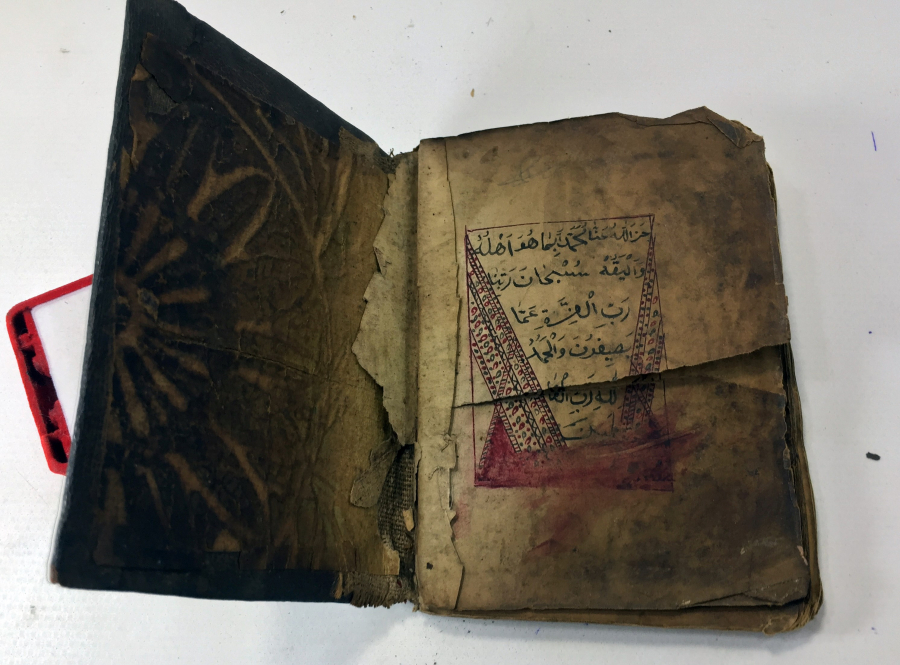 جَزَ اللّٰهُ عَنَّا مُحَمَّدْ بِمَا هُوَ اَهْلُهُ
وَالْيَقَهْ سُبْحَانَ
رَبِّ الْعِزَّةِ عَمَّا
يَصِفُونَ وَالْحَمْدُ
لله رَبِّ الْعَا